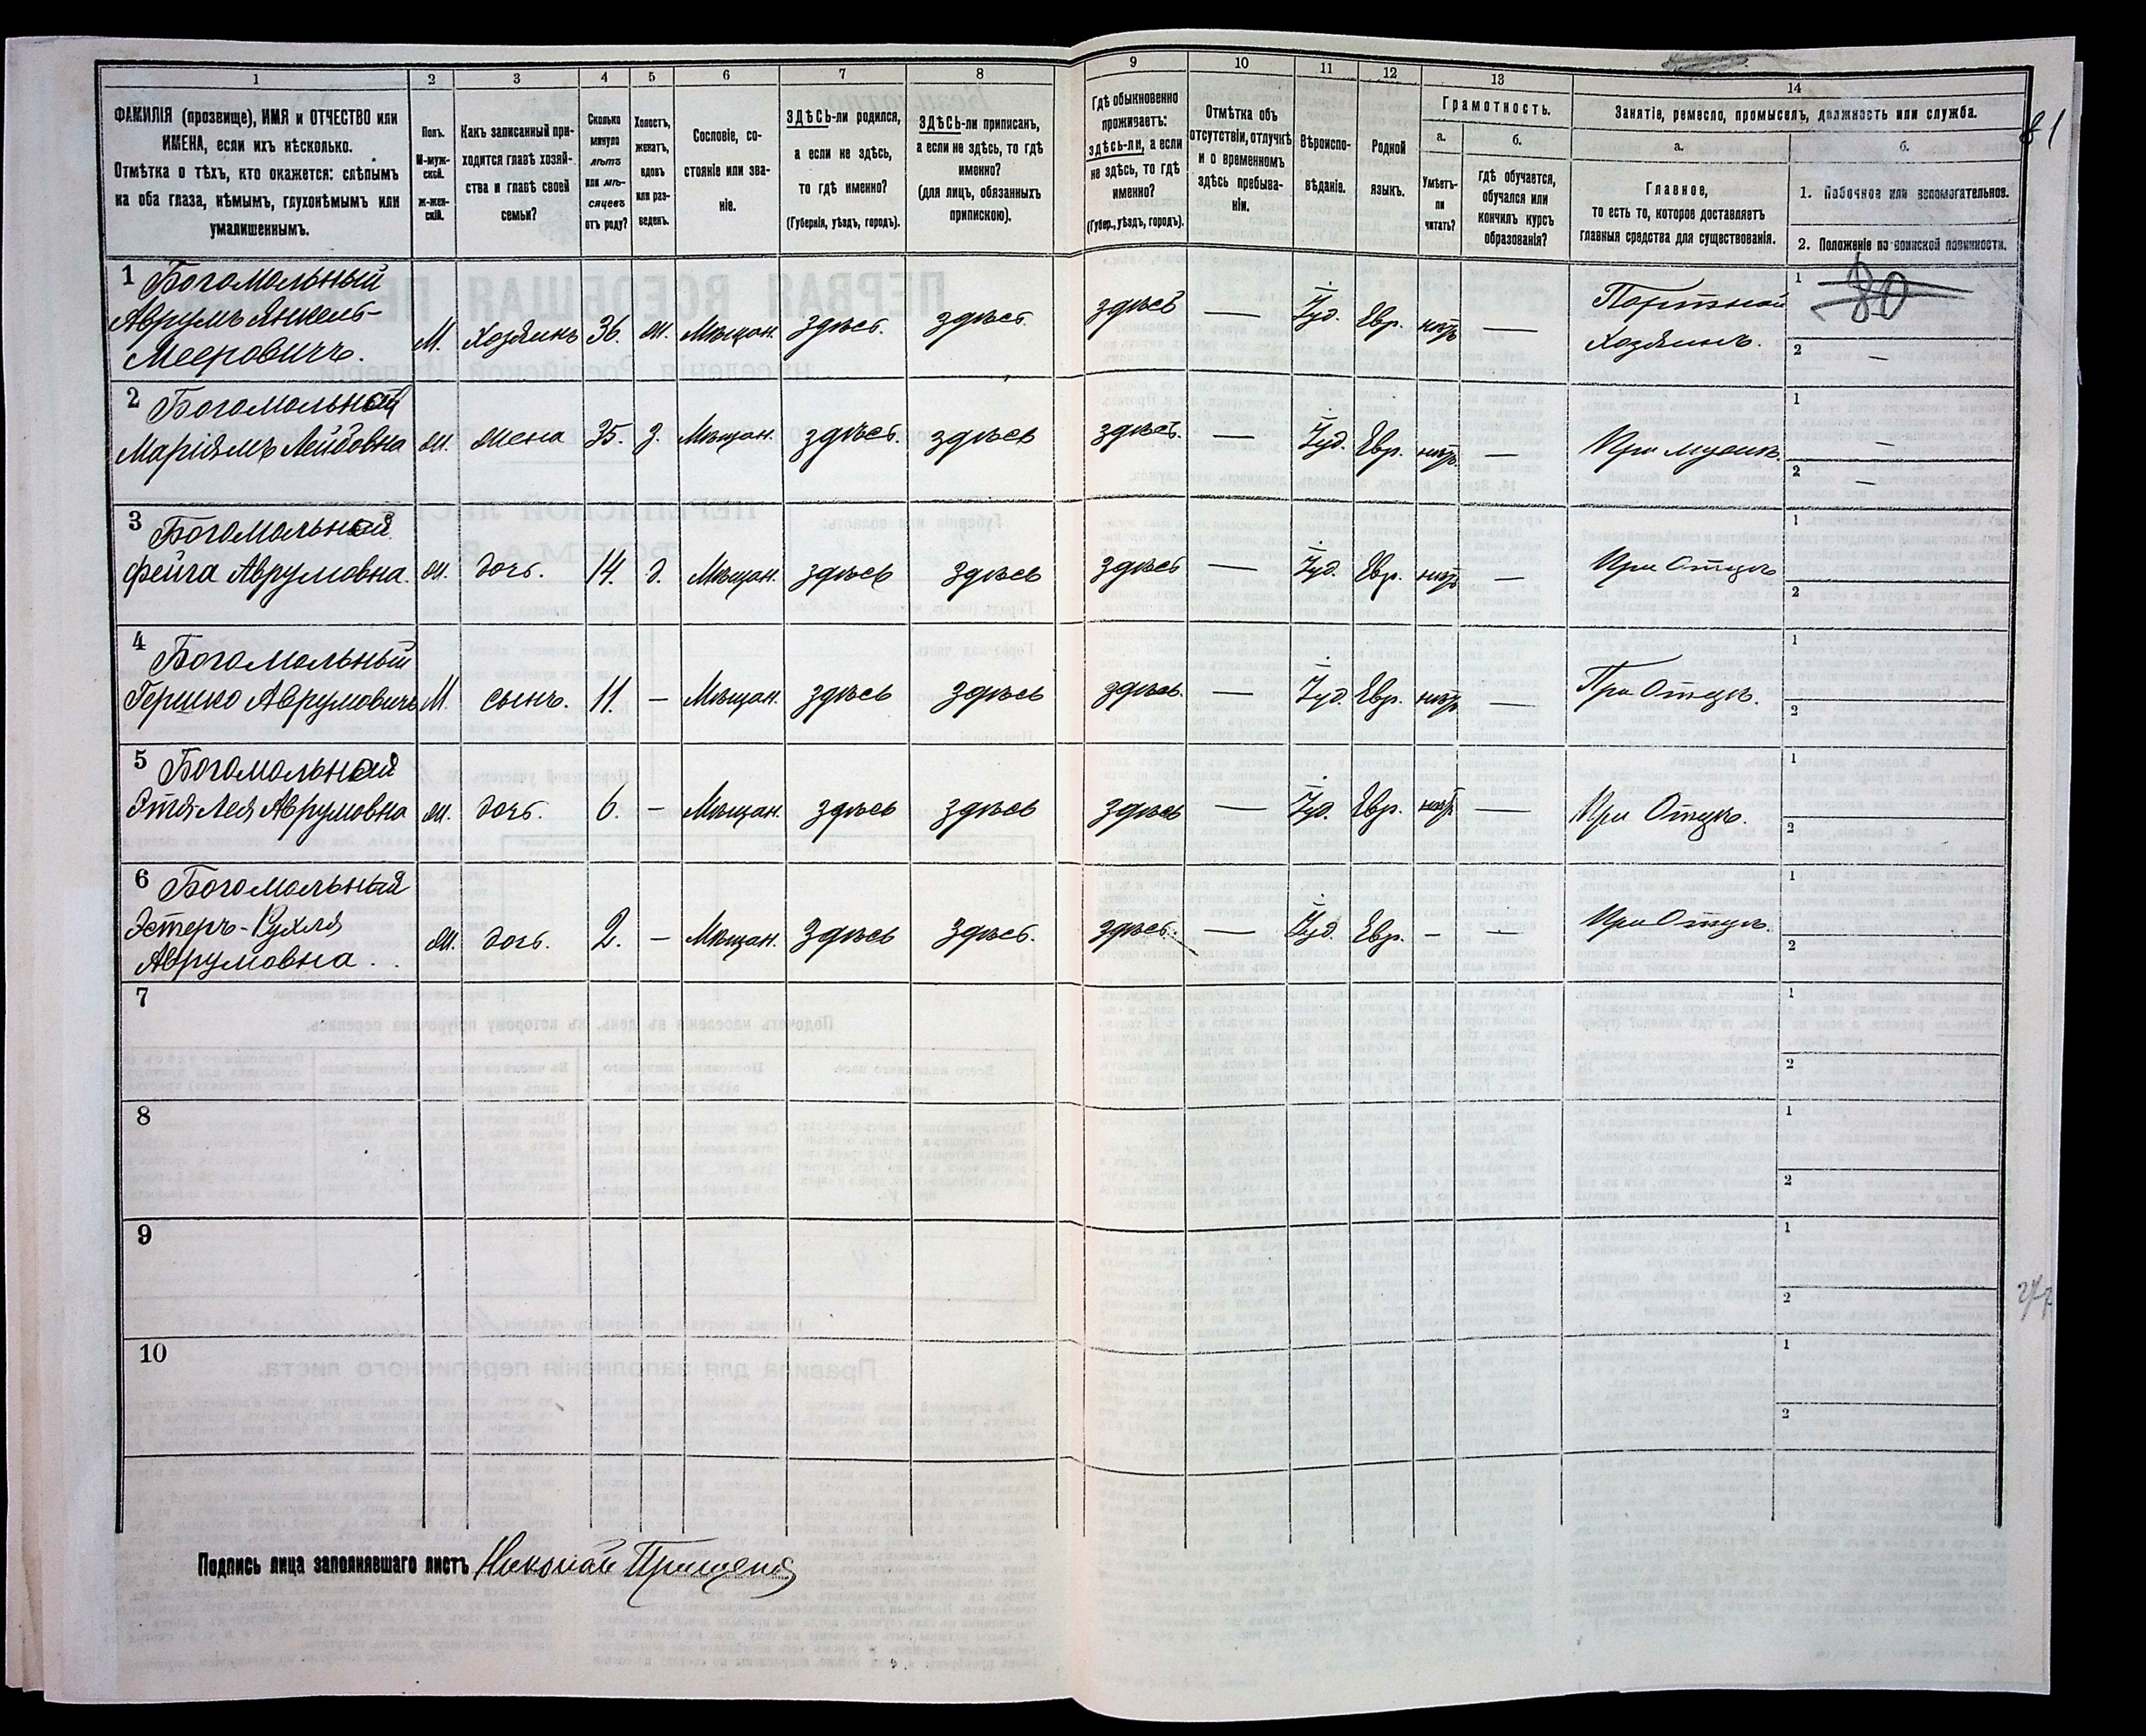 1
2
3
4
5
6
7
8
9
10
11
12
13
14
ФАМИЛІЯ (прозвище), ИМЯ и ОТЧЕСТВО или
ИМЕНА, если ихъ нѣсколько.
Отмѣтка о тѣхъ, кто окажется: слѣпымъ
на оба глаза, нѣмымъ, глухонѣмымъ или
умалишеннымъ.
Полъ.
М-муж-
ской.
ж-жен-
скій.
Какъ записанный при-
ходится главѣ хозяй-
ства и главѣ своей
семьи?
Сколько
минуло
лѣтъ
или мѣ-
сяцевъ
отъ роду?
Холостъ,
женатъ,
вдовъ
или раз-
веденъ.
Сословіе, со-
стояніе или зва-
ніе.
ЗДѢСЬ-ли родился,
а если не здѣсь,
то гдѣ именно?
(Губернія, уѣздъ, городъ).
ЗДѢСЬ-ли приписанъ,
а если не здѣсь, то гдѣ
именно?
(для лицъ, обязанныхъ
припискою).
Гдѣ обыкновенно
проживаетъ:
здѣсь-ли, а если
не здѣсь, то гдѣ
именно?
(Губер., уѣздъ, городъ).
Отмѣтка объ
отсутствіи, отлучкѣ
и о временномъ
здѣсь пребыва-
ніи.
Вѣроиспо-
вѣданіе.
Родной
языкъ.
Грамотность.
а.
Умѣетъ-
ли
читать?
б.
Гдѣ обучается,
обучался или
кончилъ курсъ
образованія?
Занятіе, ремесло, промыселъ, должность или служба.
а.
Главное,
то есть то, которое доставляетъ
главныя средства для существованія.
б.
1. Побочное или вспомогательное.
2. Положеніе по воинской повинности.
81
1 Богомольный
Аврумъ Янкель-
Мееровичъ.
М. Хозяинъ 36. ж. Мѣщан. здѣсь. здѣсь здѣсь — Іуд. Евр. нѣтъ —
Портной
Хозяинъ.
1 80
2 —
2 Богомольный
Маріямъ Лейбовна ж. жена 35. з. Мѣщан. здѣсь. здѣсь здѣсь. — Іуд. Евр. нѣтъ — При мужѣ.
1 —
2 —
3 Богомольная
Фейга Аврумовна. ж. дочь. 14. д. Мѣщан. здѣсь здѣсь здѣсь — Іуд. Евр. нѣтъ — При Отцѣ
1
2
4 Богомольный
Гершко Аврумовичъ М. сынъ. 11. — Мѣщан. здѣсь здѣсь здѣсь. — Іуд. Евр. нѣтъ — При Отцѣ.
1
2
5 Богомольная
Этя-Лея Аврумовна ж. дочь. 6. — Мѣщан. здѣсь здѣсь здѣсь — Іуд. Евр. нѣтъ — При Отцѣ.
1
2
6 Богомольный
Эстеръ-Рухля
Аврумовна. ж. дочь. 2. — Мѣщан. Здѣсь Здѣсь. здѣсь. — Іуд. Евр. — — При Отцѣ.
1
2
7
1
2
8
1
2
9
1
2
10
1
2
Подпись лица заполнявшаго листъ Николай